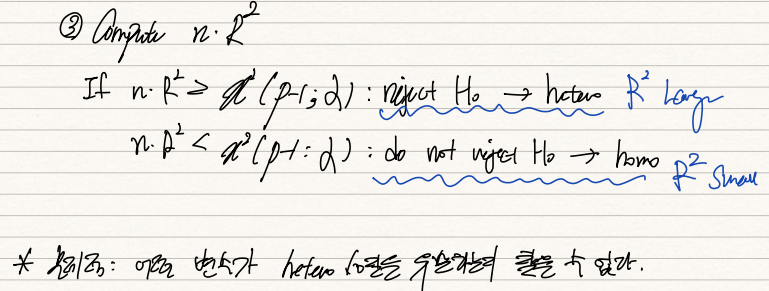 ③ Compute n·R²
If n·R² ≥ χ²(p-1; α) : reject H₀ → hetero R² Large
n·R² < χ²(p-1 : α) : do not reject H₀ → homo R² Small
* 문제점: 어떤 변수가 hetero 문제를 유발하는지 찾을 수 없다.